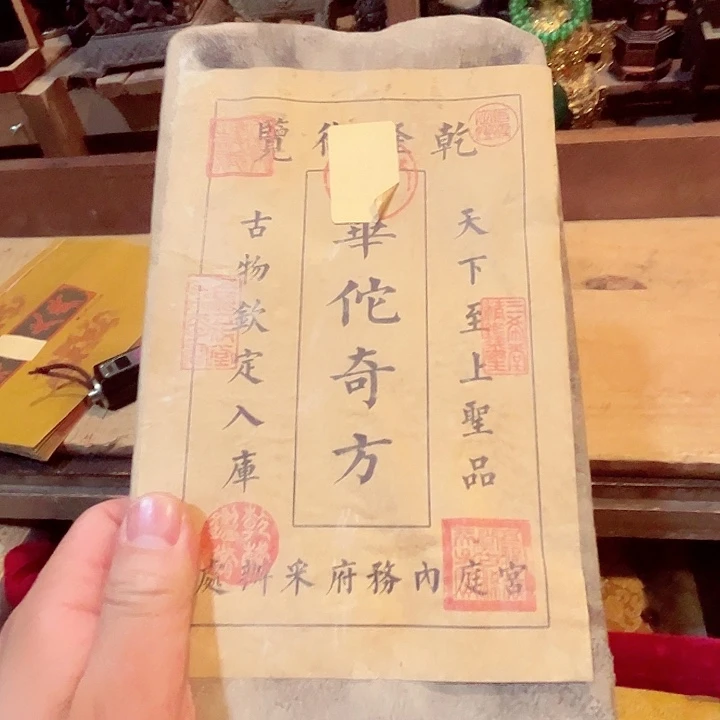 乾隆御覽
天下至上聖品
華佗奇方
古物欽定入庫
宮庭內務府采辦處